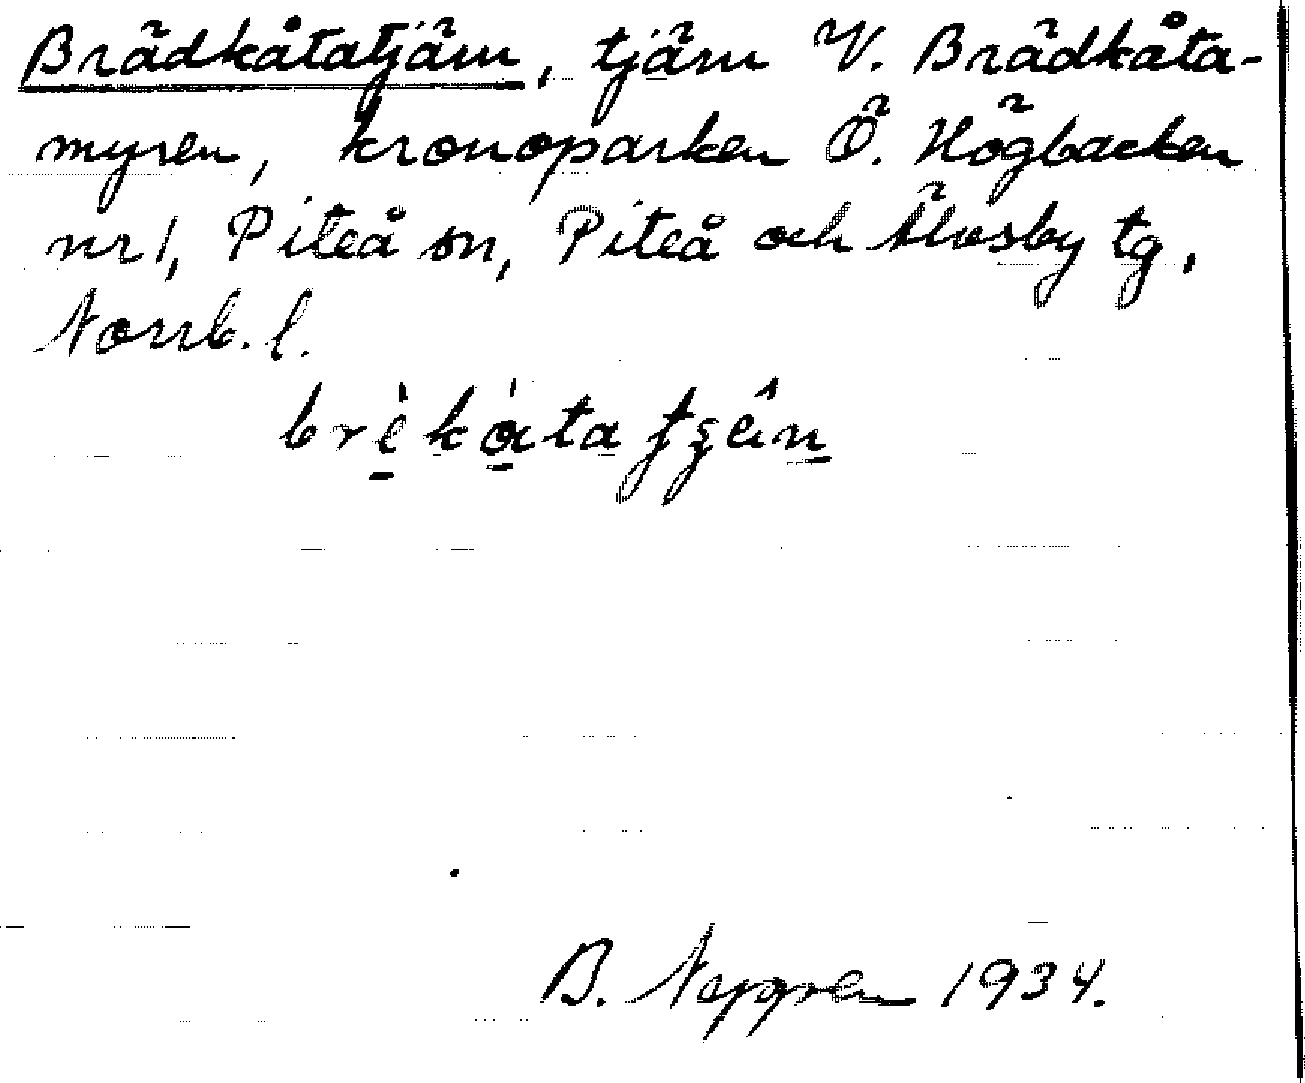 Brädkåtatjärn, tjärn V. Brädkåta-
myren, kronoparken Ö. Högbacken
nr 1, Piteå sn, Piteå och Älvsby tg,
Norrb. l.
B. Neppren 1934.